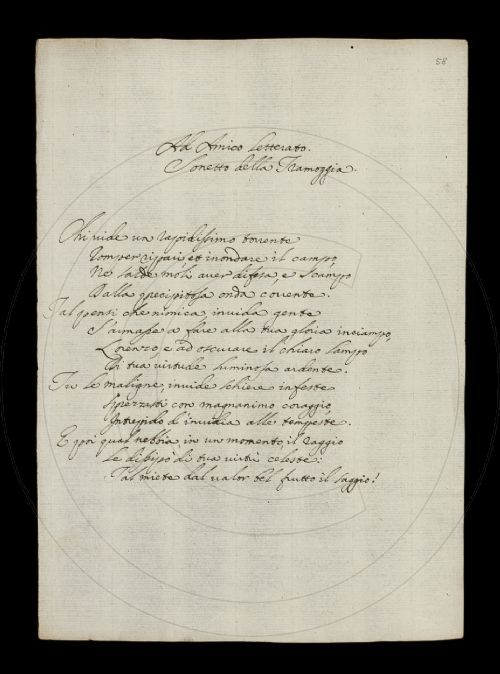 58
Ad Amico Letterato.
Sonetto della Tramoggia.
Chi vide un rapidissimo torrente
Romper ripari et inondare il campo,
Ne laʃ moli aver difesa, e scampo
Dalla precipitosa onda corrente.
Tal pensi che nimica, invida gente
S'armasse a fare alla tua gloria inciampo,
Lorenzo, e ad oscurare il chiaro lampo
Di tua virtude luminosa ardente.
Tu le maligne, invide schiere infeste
Sprezzasti con magnanimo coraggio,
Intrepido d'invidia alle tempeste.
E poi qual nebbia, in un momento, il raggio
Le dissipò di tua virtù celeste:
Tal miete dal valor bel frutto il saggio!